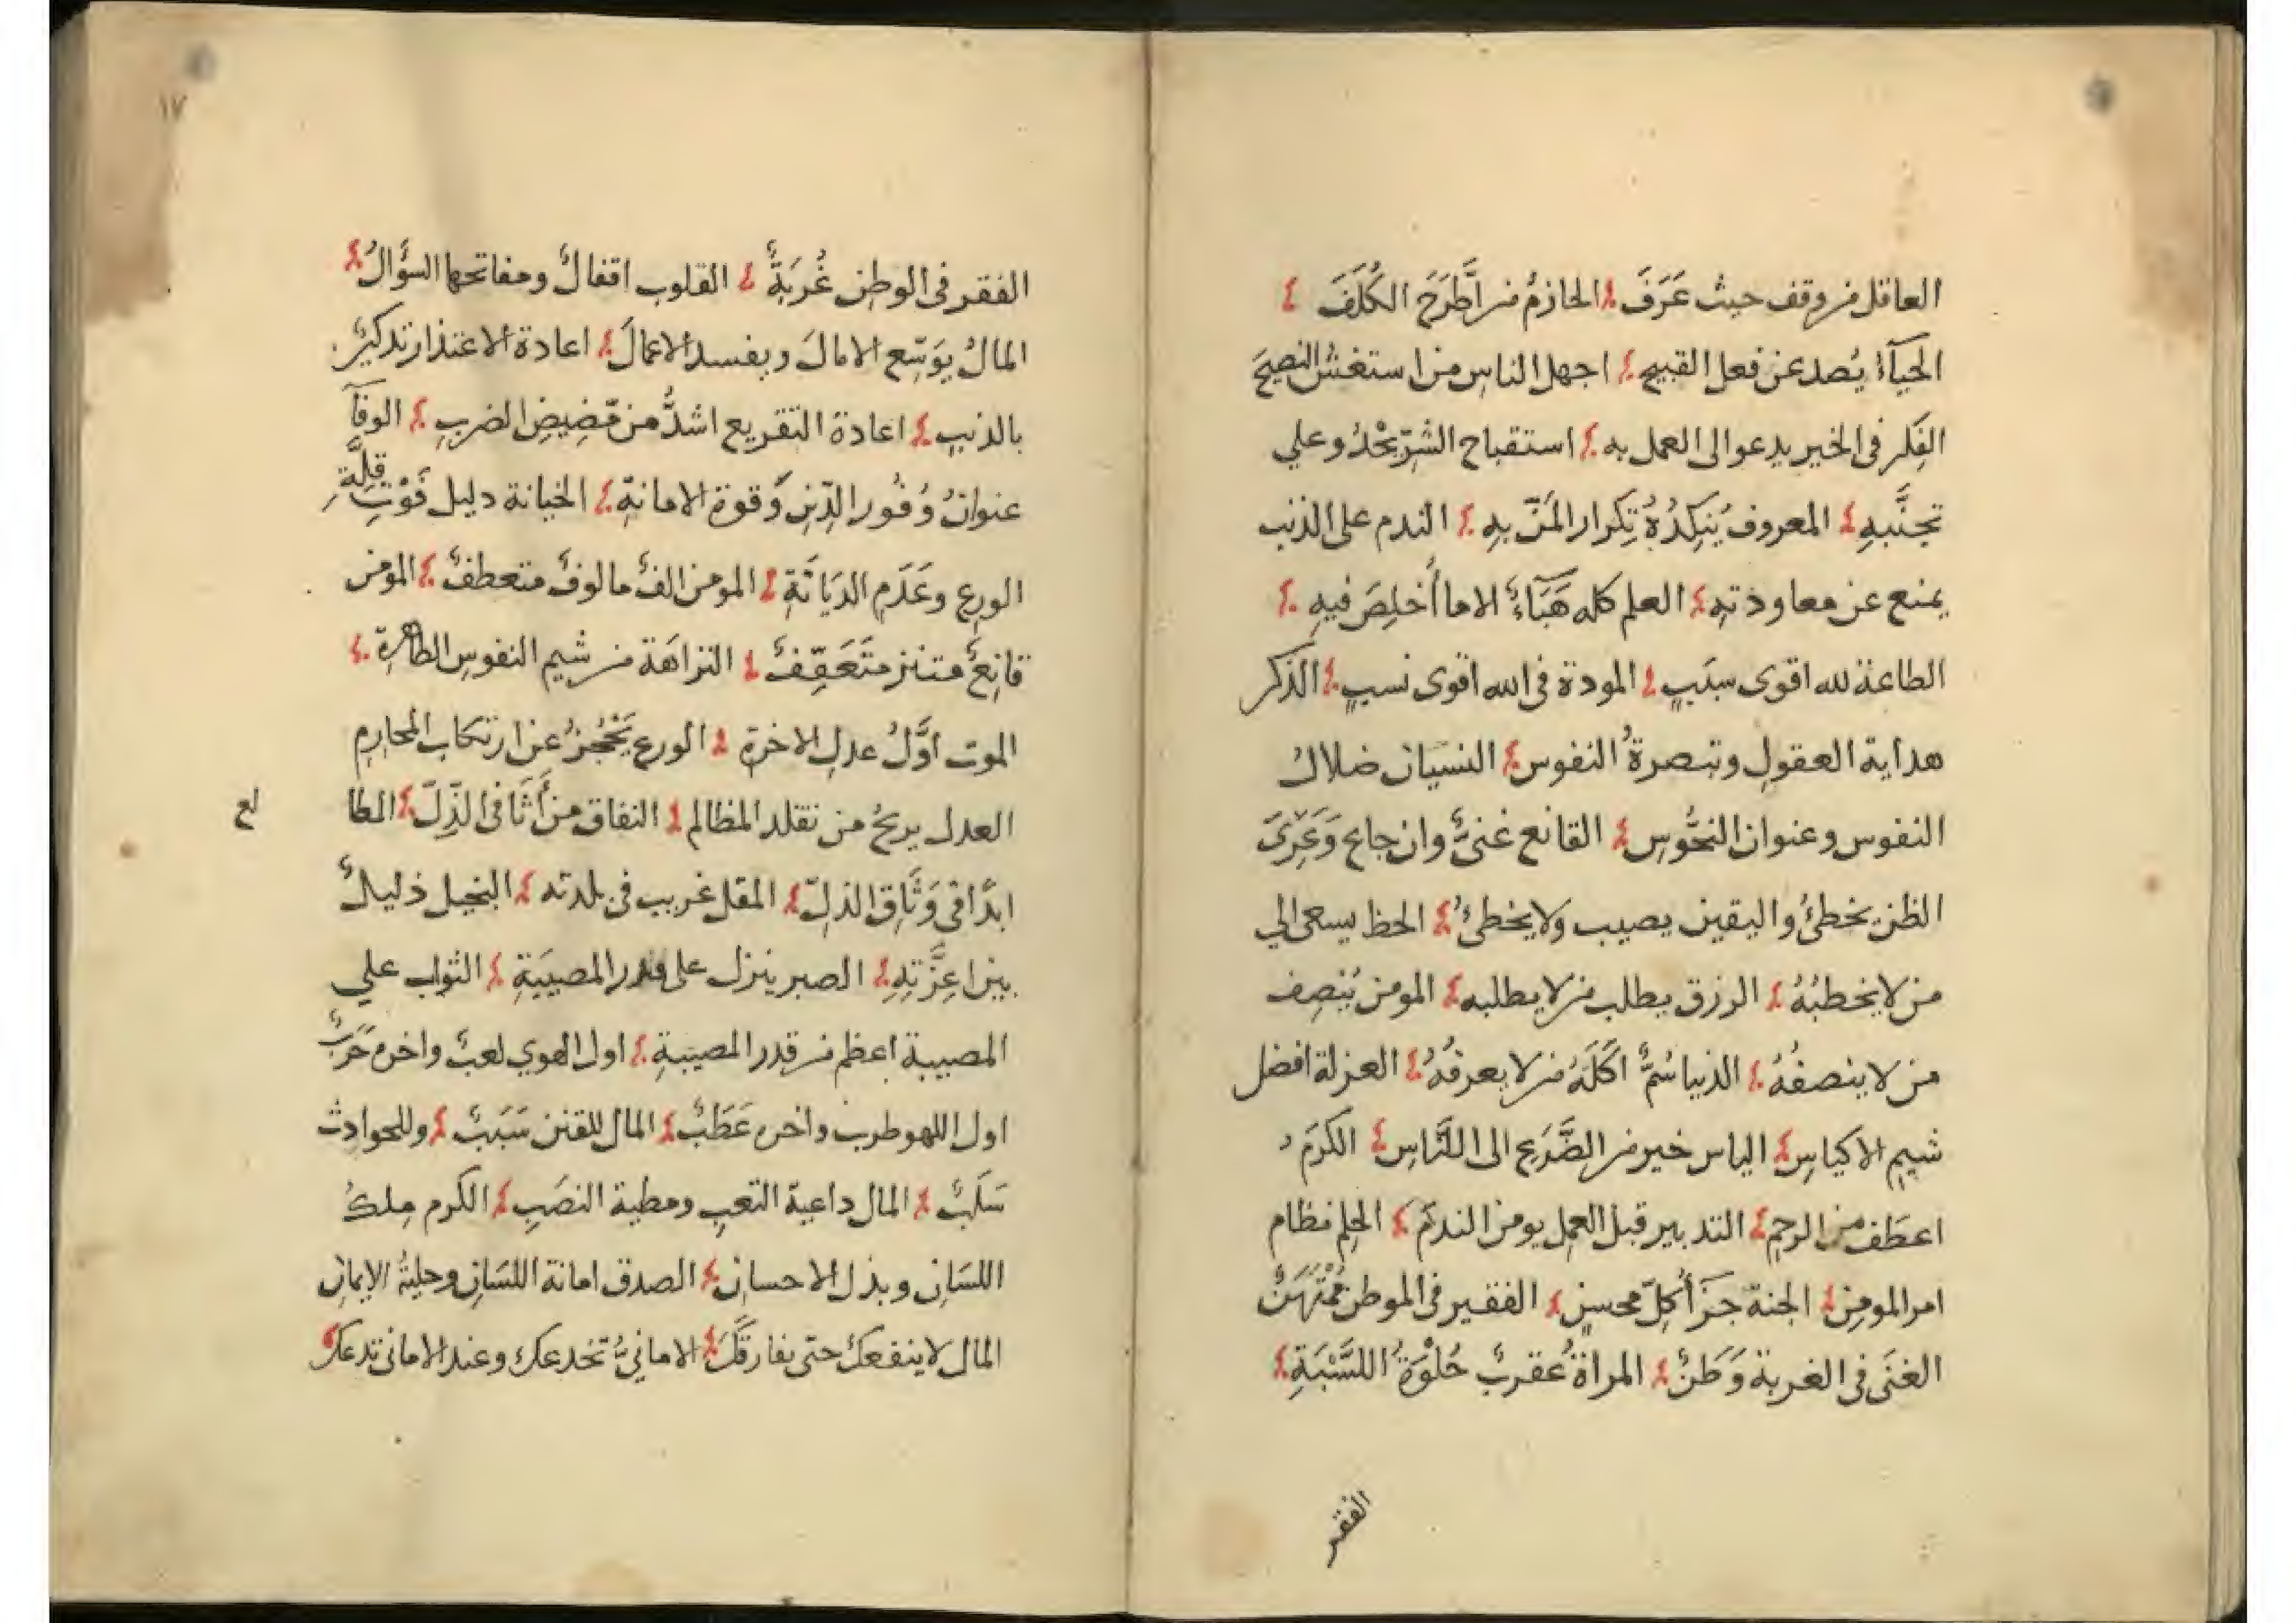 العاقل من وقف حيث عَرَفَ الحازمُ من اَطَّرَحَ الكُلَفَ
الحَيآءُ يُصد عن فعل القبيح اجهل الناس من استغش النصيحَ
الفِكر فى الخير يدعوا الى العمل به استقباح الشرّ يَحْدُو علي
تجنُّبهِ المعروف يُنَكِدُهُ تِكرار المَنّ بِهِ الندم على الذنب
يمنع عن معاودتهِ العلم كله هَبَآءٌ الا ما أُخلِصَ فيهِ
الطاعة لله اقوى سبَبٍ المودة فى الله اقوى نسبٍ الذكر
هداية العقولِ وتبصرةُ النفوس النسيان ضلالُ
النفوس وعنوان النحُّوسِ القانع غنىٌّ وان جاع وَعَرِىَ
الظن يخطئُ واليقين يصيب ولا يخطئُ الحظ يسعى الي
من لا يخطبُهُ الرزق يطلب من لا يطلبه المومن يُنصِف
من لا ينصفُهُ الدنيا سُمٌّ اَكَلَهُ من لا يعرفُهُ العزلة افضل
شيمِ الاكياسِ الياس خير من الضَّرَعِ الى النَّاسِ الكرَمُ
اعطَف من الرحِم التدبير قبل العمل يومن الندَمَ الحِلم نظام
امر المومِنِ الجنة جزآ كلّ محسنٍ الفقير فى الموطن مُمْتَهَنٌ
الغنَى فى الغربة وَطَنٌ المراةُ عقربٌ حُلْوَةُ اللَّسْبَةِ
الفقر
١٧
الفقر فى الوطن غُربَةٌ القلوب اقفالٌ ومفاتحها السؤالُ
المالُ يوَسّع الامالَ ويفسد الاعمالَ اعادة الاعتذار تذكيرٌ
بالذنبِ اعادة التقريع اشدُّ من مَّضِيضِ الضربِ الوفآ
عنوانُ وُفُور الدّينِ وقوة الامانةِ الخيانة دليل
قلَّةِ
الورع وعَدَمِ الديَانَةِ المومن الفٌ مالوفٌ متعطفٌ المومن
قانِعٌ متنزه متَعَفِّفٌ النزاهَة من شيم النفوس الطاهرةِ
الموت اوَّلُ عدلِ الاخرةِ الورع يَحْجُزُ عن ارتكاب المحارمِ
العدل يريحُ من تقلد المظالم النفاق من أَثَافى الذِّلّ الطا
مع
ابدًا فى وَثَاقِ الذلِّ المقل غريب فى بلدته البخيل ذليلٌ
بين اعِزَّتِهِ الصبر ينزل على قدر المصيبَةِ الثواب علي
المصيبة اعظم من قدر المصيبةِ اول الهوي لعبٌ واخره حَرَبٌ
اول اللهو طرب واخره عَطَبٌ المال للفتن سَبَبٌ وللحوادث
سَلَبٌ المال داعية التعبِ ومطية النصَبِ الكرم ملكُ
اللسَانِ وبذل الاحسانِ الصدق امانة اللسَانِ وحليةُ الايمانِ
المال لا ينفعكَ حتّى يفارقَكَ الامانيُّ تخدعك وعند الامانى تدعك